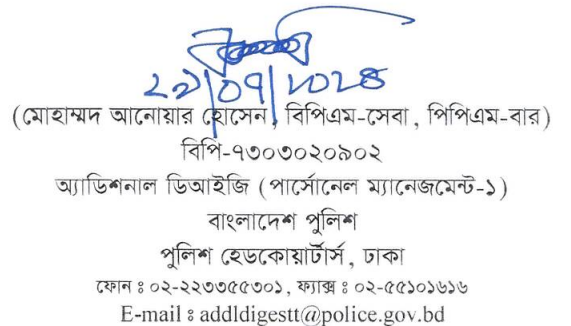 ২৯|০৭|২০২৪
(মোহাম্মদ আনোয়ার হোসেন, বিপিএম-সেবা, পিপিএম-বার)
বিপি-৭৩০৩০২০৯০২
অ্যাডিশনাল ডিআইজি (পার্সোনেল ম্যানেজমেন্ট-১)
বাংলাদেশ পুলিশ
পুলিশ হেডকোয়ার্টার্স, ঢাকা
ফোন ঃ ০২-২২৩৩৫৫৩০১, ফ্যাক্স ঃ ০২-৫৫১০১৬১৬
E-mail ঃ addldigestt@police.gov.bd